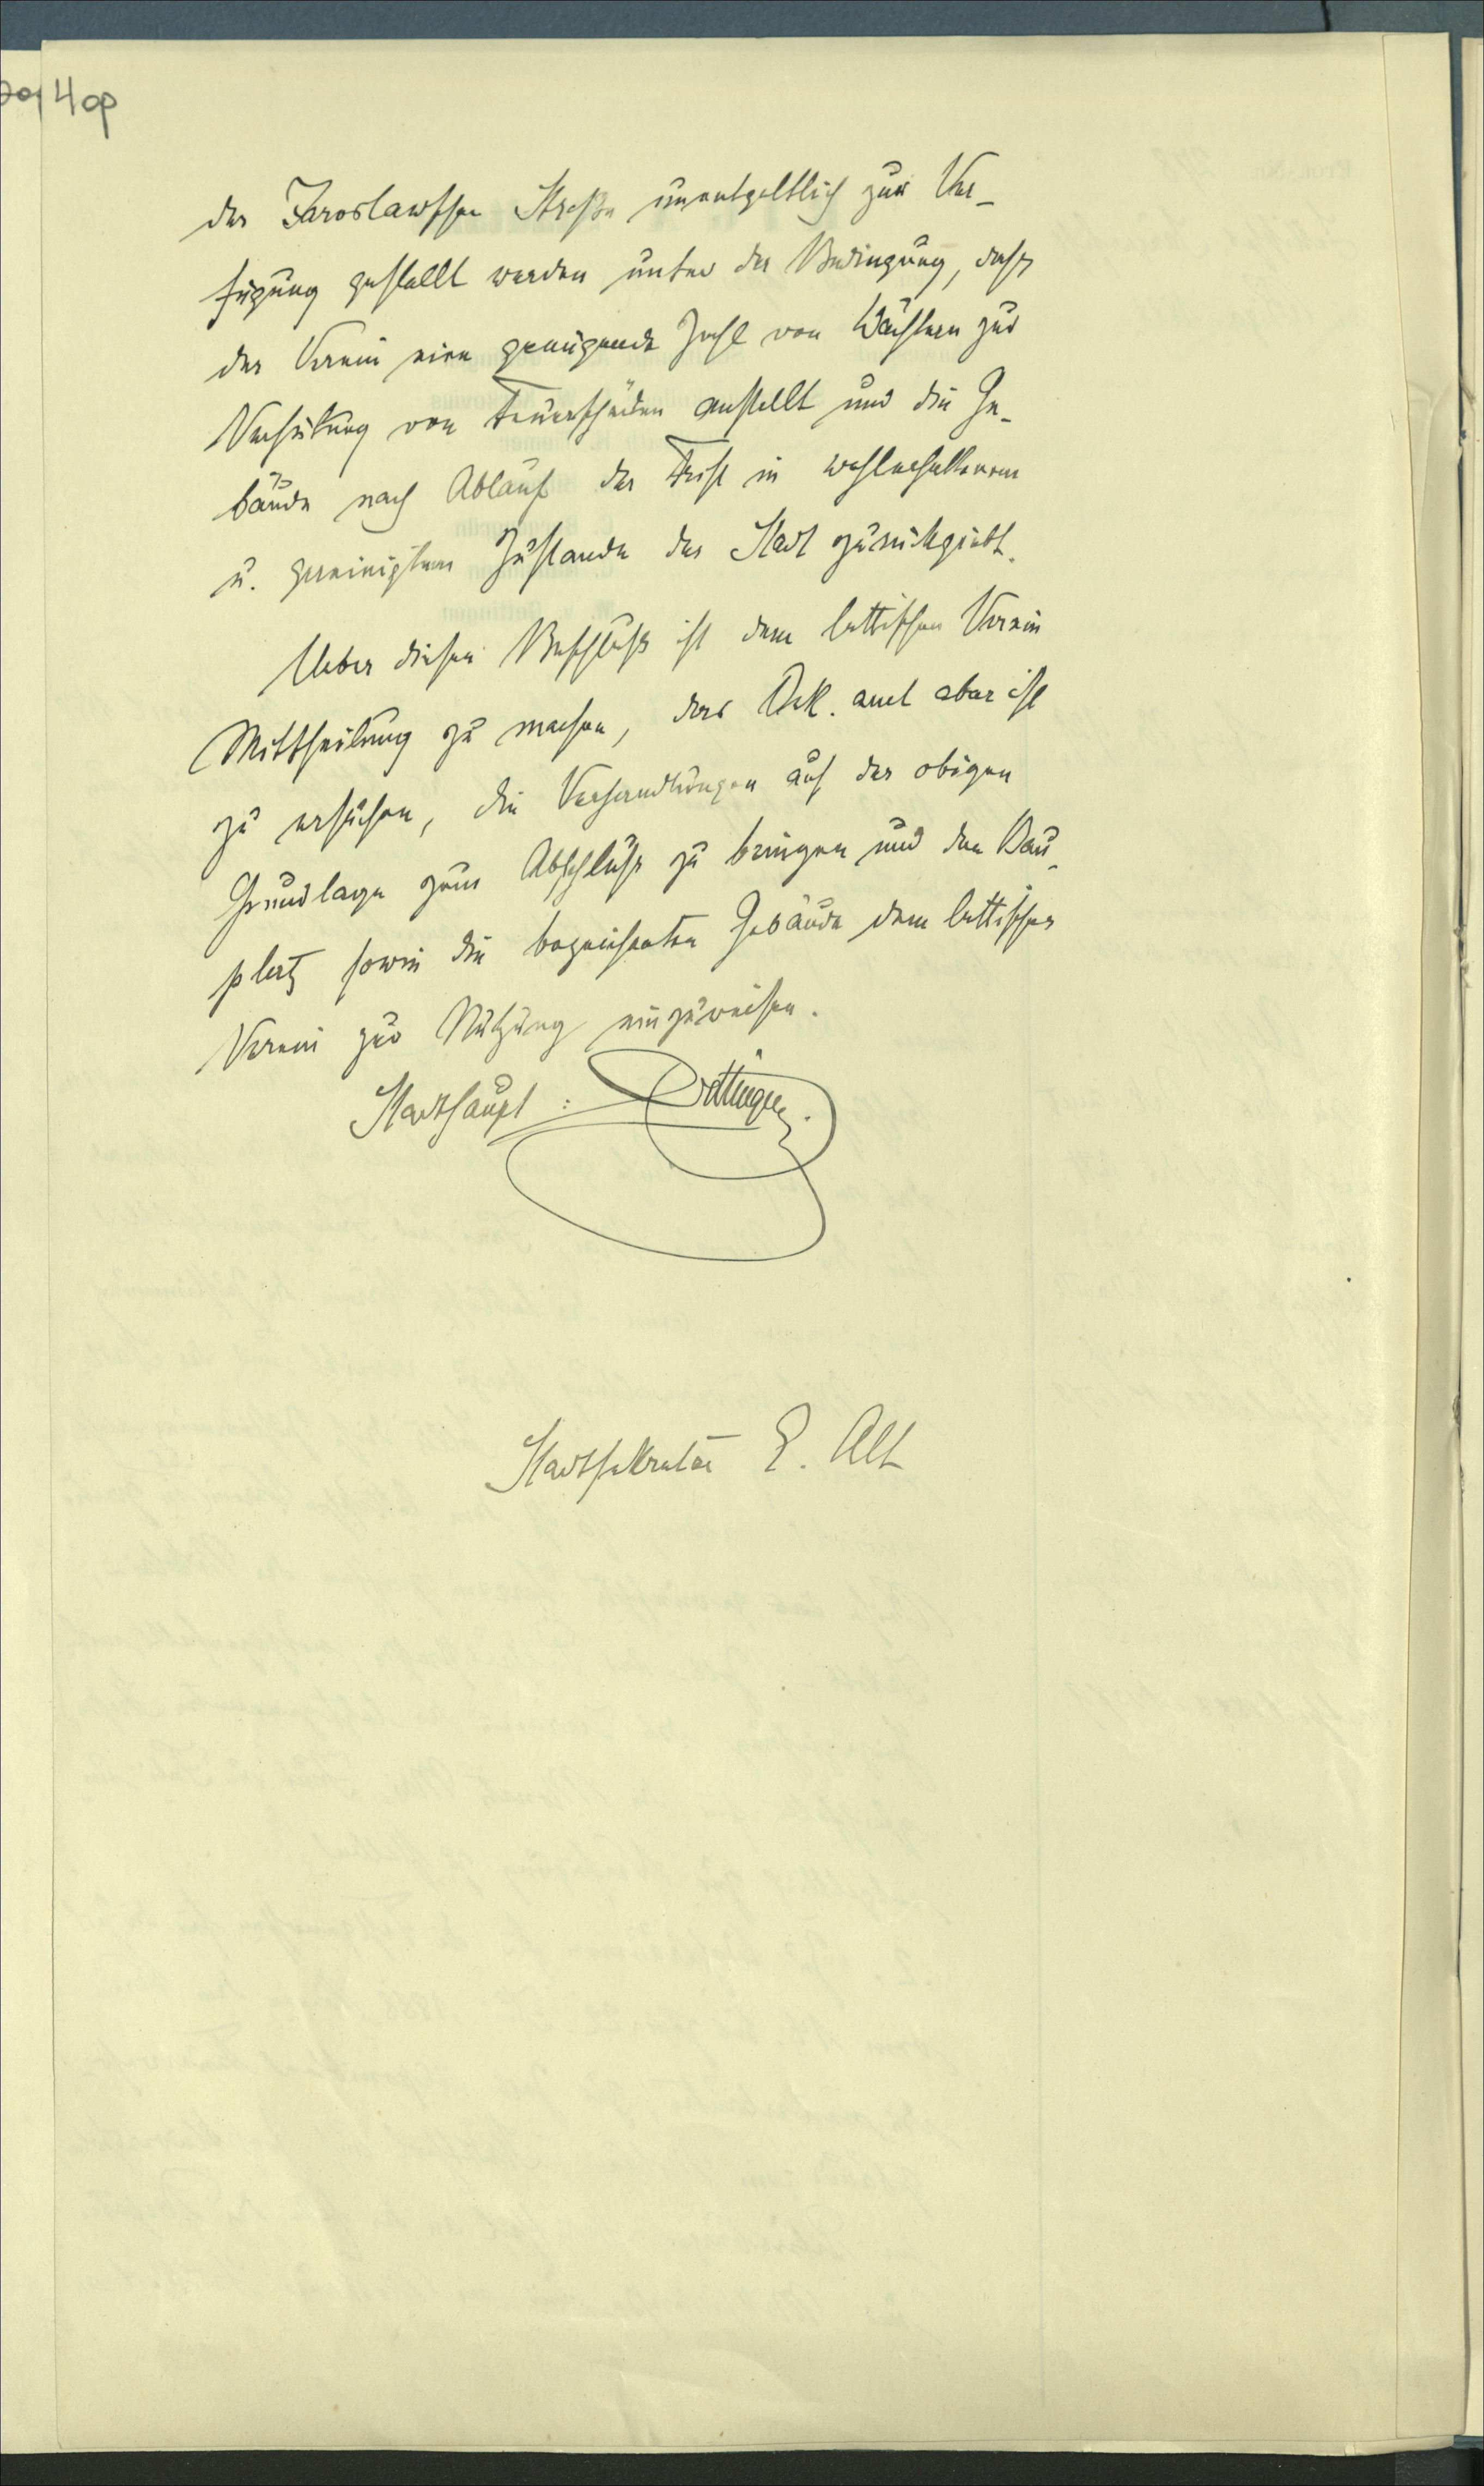 40p
der Jaroslawschen Straße unentgeltlich zur Ver-
fügung gestellt werden unter der Bedingung, dass
der Verein eine genügende Zahl von Wächtern zur
Verhütung von Feuerschäden anstellt und die Ge-
bäude nach Ablauf der Frist in wohlerhaltenem
u. gereinigtem Zustande der Stadt zurückgiebt.
Ueber diesen Beschluss ist dem lettischen Verein
Mittheilung zu machen, das Oek. amt aber ist
zu ersuchen, die Verhandlungen auf der obigen
Grundlage zum Abschluss zu bringen und den Bau-
platz sowie die bezeichneten Gebäude dem lettischen
Verein zur Nutzung einzuweisen.
Stadthaupt: Oettingen.
Stadtsekretär E. Alt